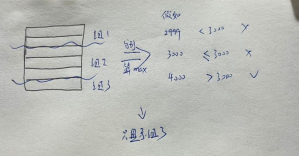 假如
组1
2999 < 3000 ×
组2
3000 ≤ 3000 ×
max
组3
4000 > 3000 ✓
组3